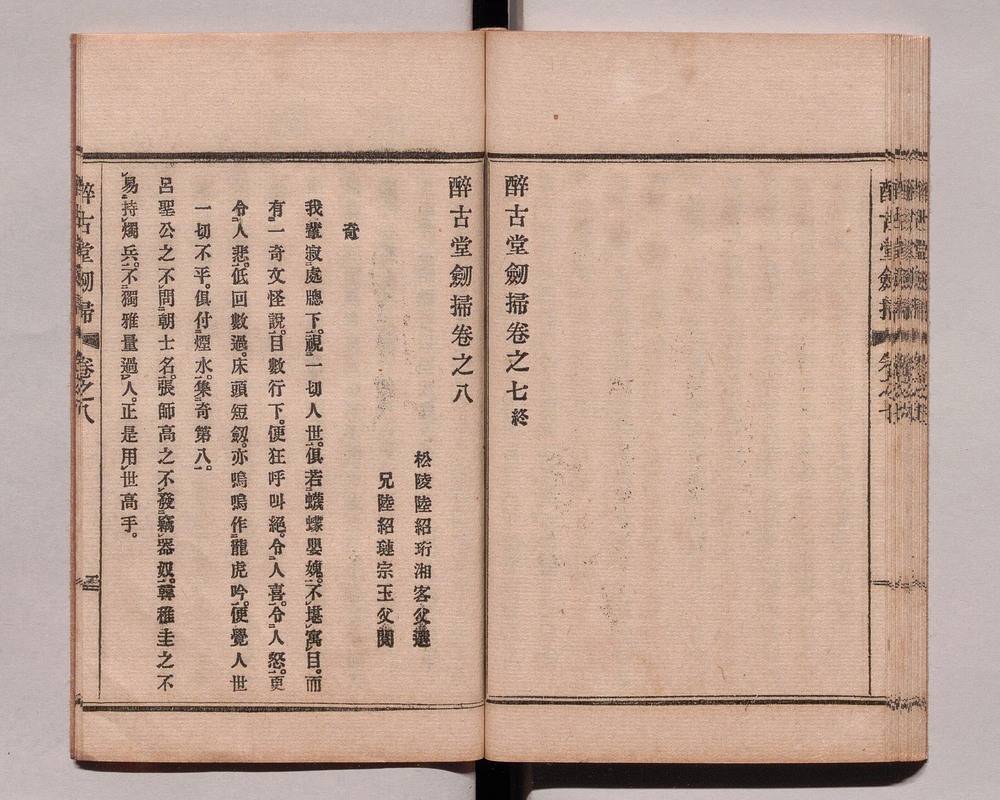 醉古堂劒掃卷之七終
醉古堂劒掃卷之八
松陵陸紹珩湘客父選
兄陸紹璉宗玉父閱
奇
我輩寂處牕下。視一切人世。俱若蠛蠓嬰媿。不堪寓目。而
有一奇文怪說。目數行下。便狂呼叫絕。令人喜。令人怒。更
令人悲。低回數過。床頭短劒。亦嗚嗚作龍虎吟。便覺人世
一切不平。俱付煙水。集奇第八。
呂聖公之不問朝士名。張師高之不發竊器奴。韓稚圭之不
易持燭兵。不獨雅量過人。正是用世高手。
醉古堂劒掃 卷之八